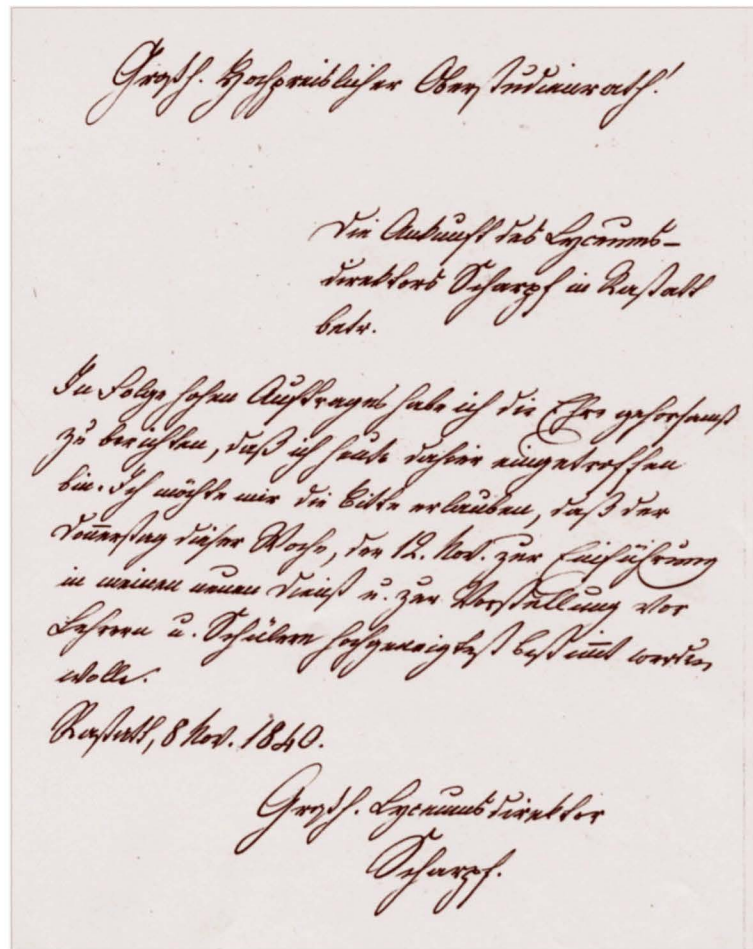 Großh. Hochpreislicher Oberstudienrath!
Die Ankunft des Lyceums-
direktors Scharpf in Rastatt
betr.
In Folge hohen Auftrages habe ich die Ehre gehorsamst
zu berichten, daß ich heute dahier eingetroffen
bin. Ich möchte mir die Bitte erlauben, daß der
Doners̅tag dieser Woche, der 12. Nov. zur Einführung
in meinen neuen Dienst u. zur Vorstellung vor
Lehrern u. Schülern hochgeneigtest bestim̅t werden
wolle.
Rastatt, 8 Nov. 1840.
Großh. Lyceumsdirektor
Scharpf.